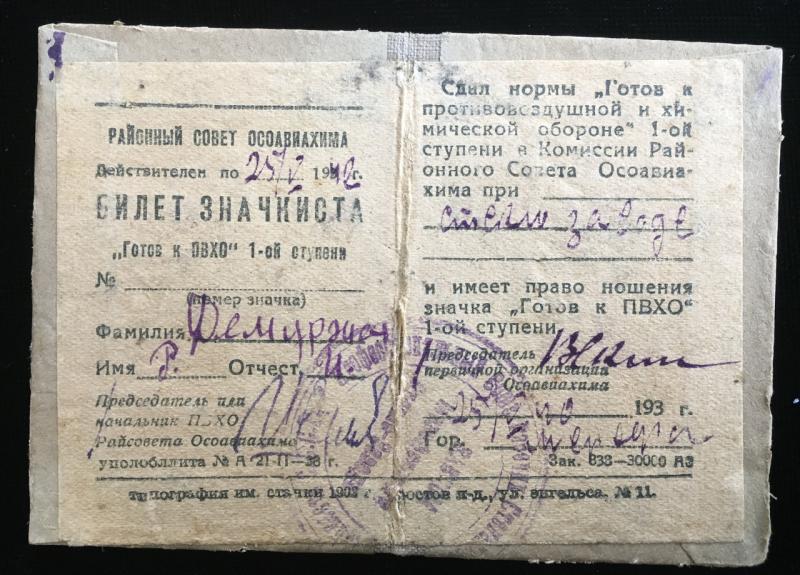 РАЙОННЫЙ СОВЕТ ОСОАВИАХИМА
Действителен по 25/V 1942 г.
БИЛЕТ ЗНАЧКИСТА
„Готов к ПВХО" 1-ой ступени
№
(номер значка)
Фамилия
Имя Р. Отчест. И.
Председатель или
начальник ПВХО
Райсовета Осоавиахима
уполобллита № А 21-II-38 г.
Сдал нормы „Готов к
противовоздушной и хи-
мической обороне" 1-ой
ступени в Комиссии Рай-
онного Совета Осоавиа-
хима при
стекло заводе
и имеет право ношения
значка „Готов к ПВХО"
1-ой ступени
Председатель
первичной организации
Осоавиахима
25/ 40 193 г.
Гор.
Зак. 838—30000 АЗ
типография им. стачки 1902 г. Ростов н-д., ул. энгельса, № 11.